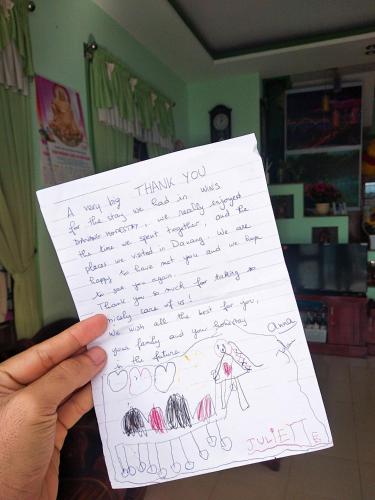 THANK YOU
A very big
for the stay we had in WIN'S
DANANG HOMESTAY, we really enjoyed
the time we spent together, and the
places we visited in Danang. We are
happy to have met you and we hope
to see you again.
Thank you so much for taking so
nicely care of us!
We wish all the best for you,
your family and your homestay
in the future.
Anna
JULIETTE